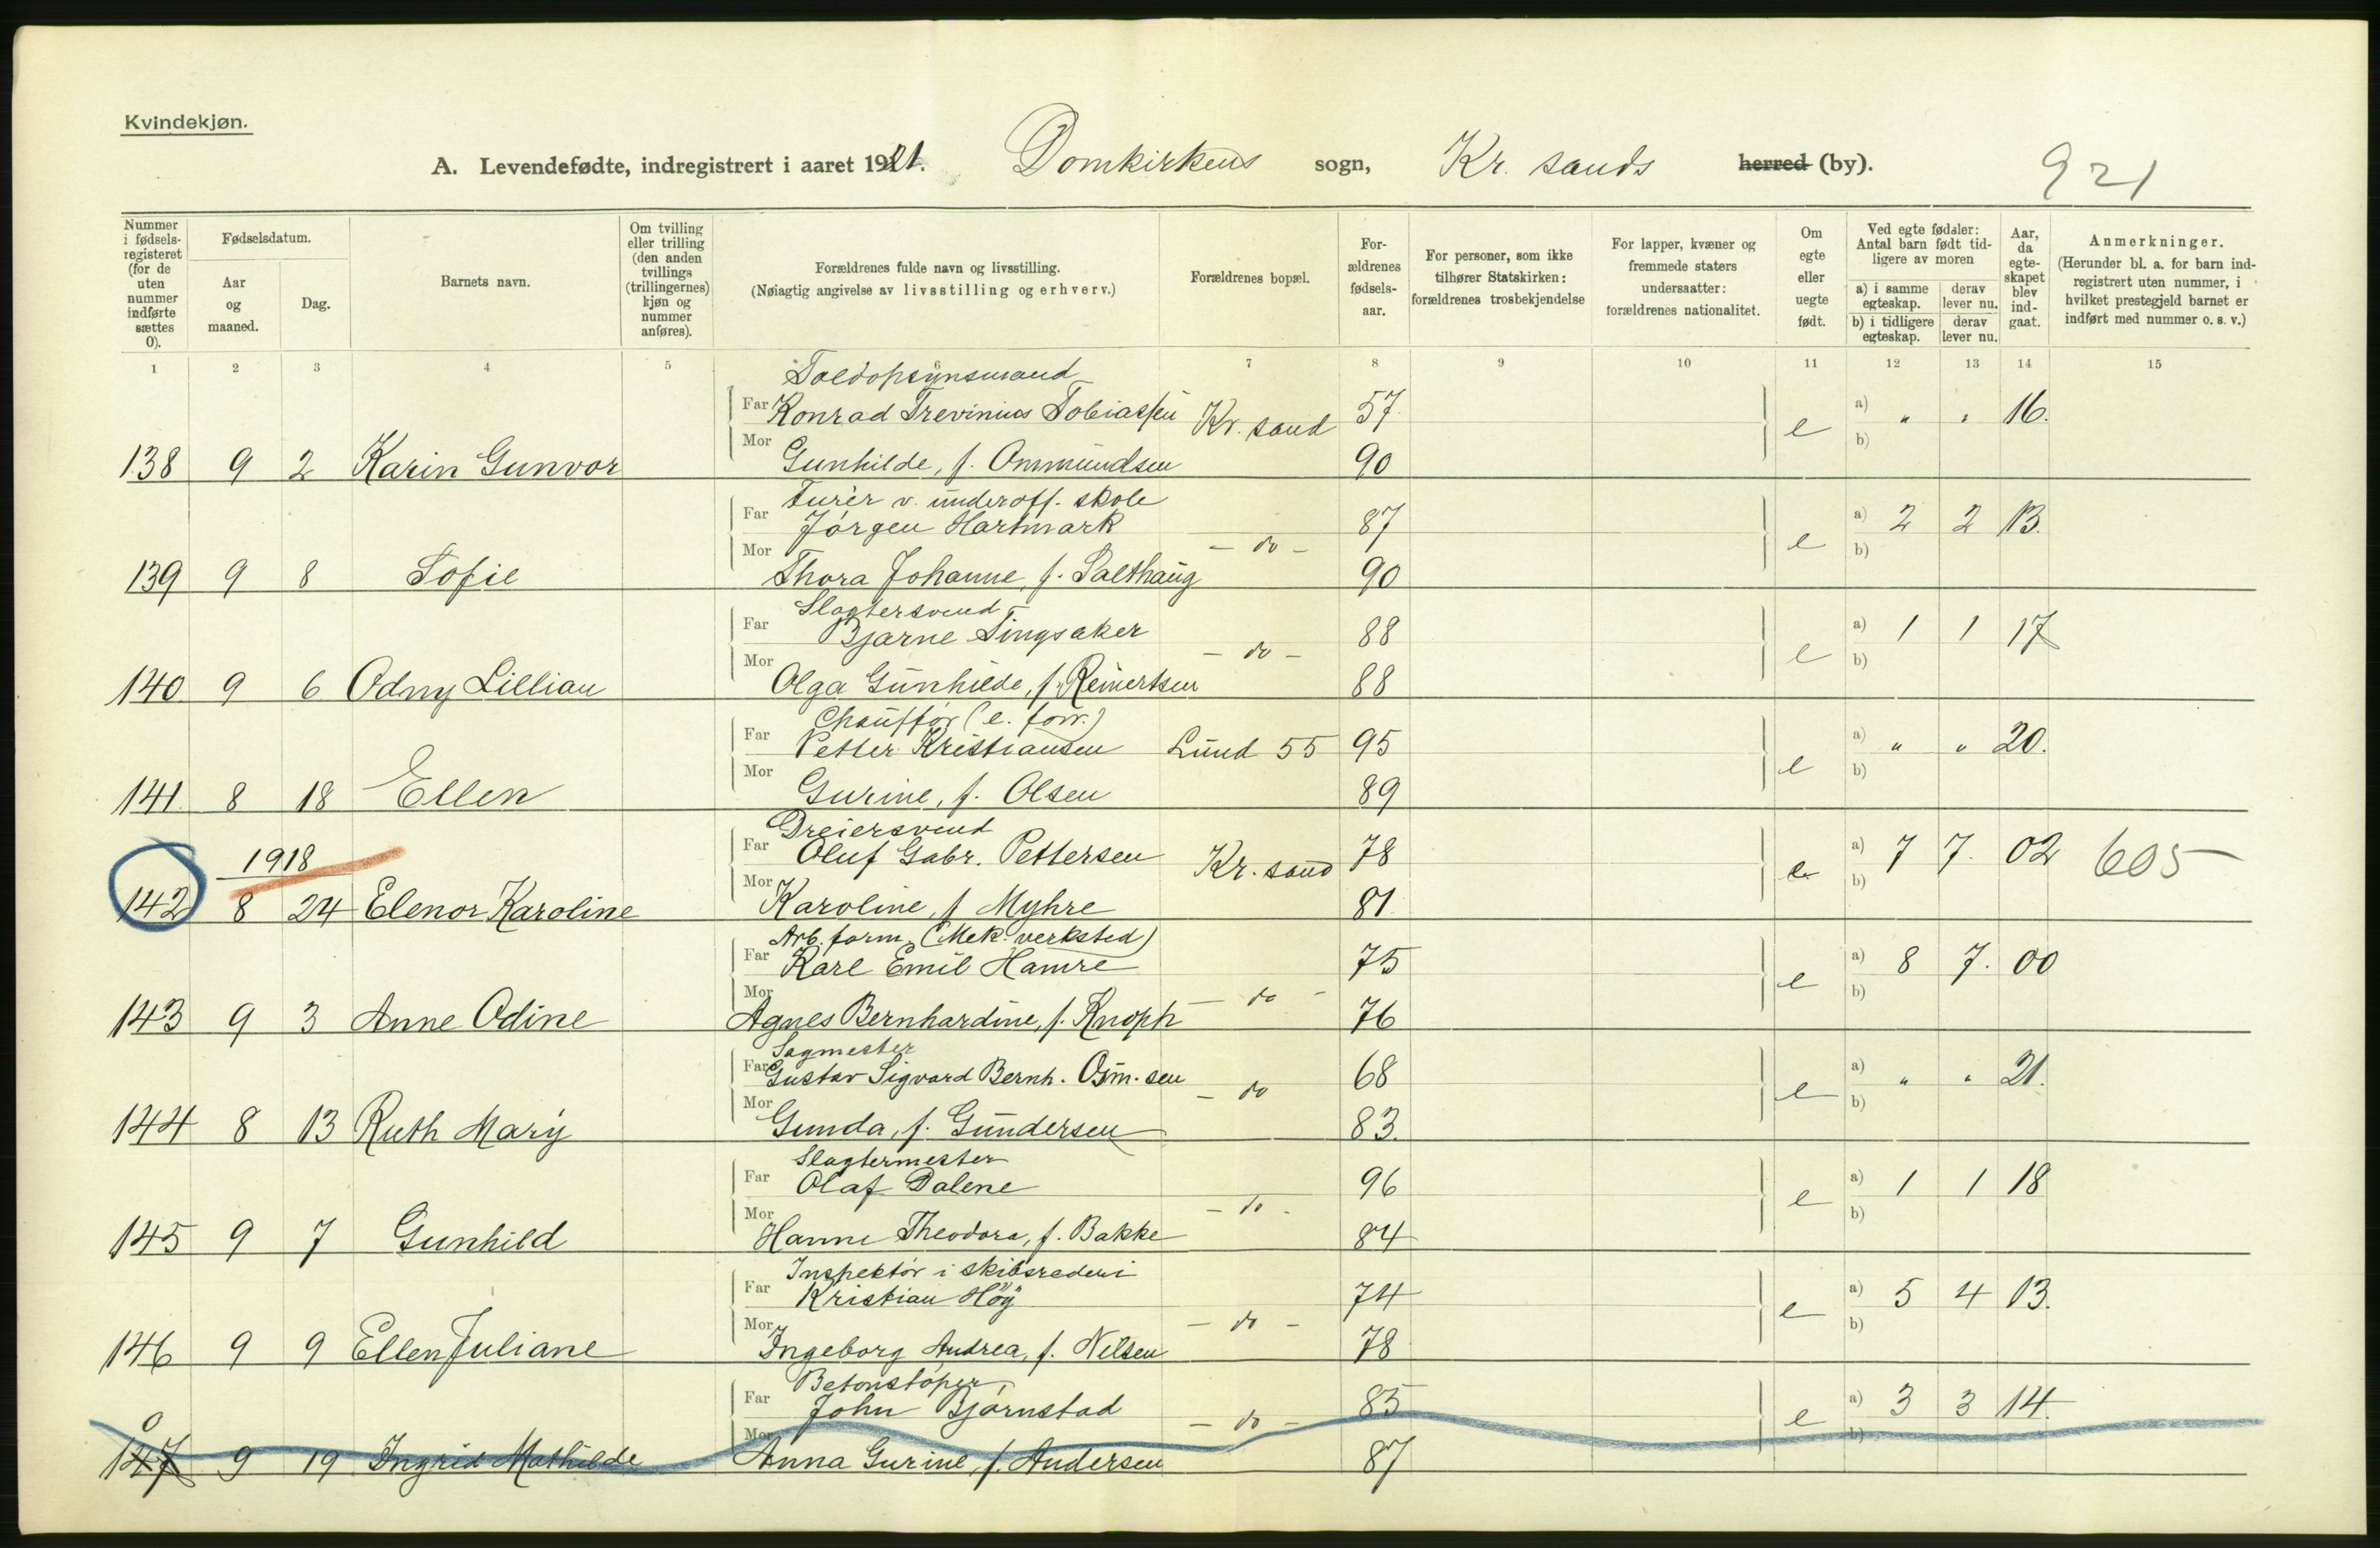 Kvindekjøn.
A. Levendefødte, indregistrert i aaret 1921. Domkirkens sogn, Kr. sands herred (by). 921
Nummer i fødselsregisteret (for de uten nummer indførte sættes 0).
Fødselsdatum.
Aar og maaned.
Dag.
Barnets navn.
Om tvilling eller trilling (den anden tvillings (trillingernes) kjøn og nummer anføres).
Forældrenes fulde navn og livsstilling. (Nøiagtig angivelse av livsstilling og erhverv.)
Forældrenes bopæl.
Forældrenes fødselsaar.
For personer, som ikke tilhører Statskirken: forældrenes trosbekjendelse
For lapper, kvæner og fremmede staters undersaatter: forældrenes nationalitet.
Om egte eller uegte født.
Ved egte fødsler: Antal barn født tidligere av moren
a) i samme egteskap. derav lever nu.
b) i tidligere egteskap. derav lever nu.
Aar, da egteskapet blev indgaat.
Anmerkninger. (Herunder bl. a. for barn indregistrert uten nummer, i hvilket prestegjeld barnet er indført med nummer o. s. v.)
1 2 3 4 5 6 7 8 9 10 11 12 13 14 15
Toldopsynsmand
Far Konrad Trevinius Tobiassen Kr. sand 57 e a) " " 16.
Mor b)
138 9 2 Karin Gunvor Gunhilde, f. Ommundsen 90
Furér v. underoff. skole
Far Jørgen Hartmark 87 a) 2 2 13.
Mor - do - e b)
139 9 8 Sofie Thora Johanne, f. Salthaug 90
Slagtersvend
Far Bjarne Tingsaker 88 a) 1 1 17
Mor - do - e b)
140 9 6 Odny Lillian Olga Gunhilde, f. Reinertsen 88
Chauffør (e. forr.)
Far Petter Kristiansen Lund 55 95 a) " " 20.
Mor e b)
141. 8 18 Ellen Gurine, f. Olsen 89
Dreiersvend
1918 Far Oluf Gabr. Pettersen Kr. sand 78 e a) 7 7. 02 605
Mor b)
142 8 24 Elenor Karoline Karoline, f Myhre 81
Arb. form. (Mek. verksted)
Far Karl Emil Hamre 75 a) 8 7. 00
Mor - do - e b)
143 9 3 Anne Odine Agnes Bernhardine, f. Knoph 76
Sagmester
Far Gustav Sigvard Bernh. Osm.sen 68 a) " " 21.
Mor - do e b)
144 8 13 Ruth Mary Gunda, f. Gundersen 83.
Slagtermester
Far Olaf Dalene 96 a) 1 1 18
Mor - do - e b)
145 9 7 Gunhild Hanne Theodora, f. Bakke 84
Inspektør i skibsrederi
Far Kristian Höy 74 a) 5 4 13.
Mor - do - e b)
146 9 9 Ellen Juliane Ingeborg Andrea, f. Nilsen 78
Betonstøper,
Far John Bjørnstad 85 a) 3 3 14.
0 Mor - do - e b)
147 9 19 Ingrid Mathilde Anna Gurine, f. Andersen 87